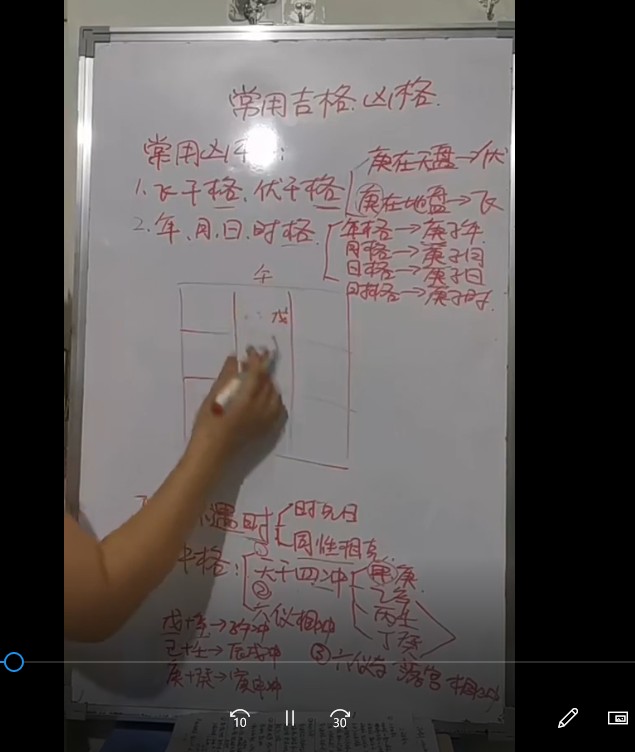 常用吉格.凶格.
常用凶格:
庚在天盘→伏
1.飞干格、伏干格
庚在地盘→飞
2.年、月、日、时格
年格→庚+年
月格→庚+月
日格→庚+日
时格→庚+时
午
戊
遇时
时克日
①
同性相克
冲格:
天干四冲
甲庚
乙辛
②
丙壬
六仪相冲
丁癸
戊+辛→子午冲
己+壬→辰戌冲
③六仪与落宫相冲
庚+癸→寅申冲
10
30